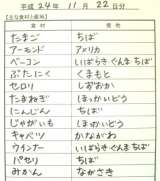 平成 24年 11月 22日分
【主な食材と産地】
食材 産地
たまご ちば
アーモンド アメリカ
ベーコン いばらき ぐんま ちば
ぶたにく くまもと
セロリ しずおか
たまねぎ ほっかいどう
にんじん ちば
じゃがいも ほっかいどう
キャベツ かながわ
ウインナー いばらき ぐんま ちば
パセリ ちば
みかん ながさき